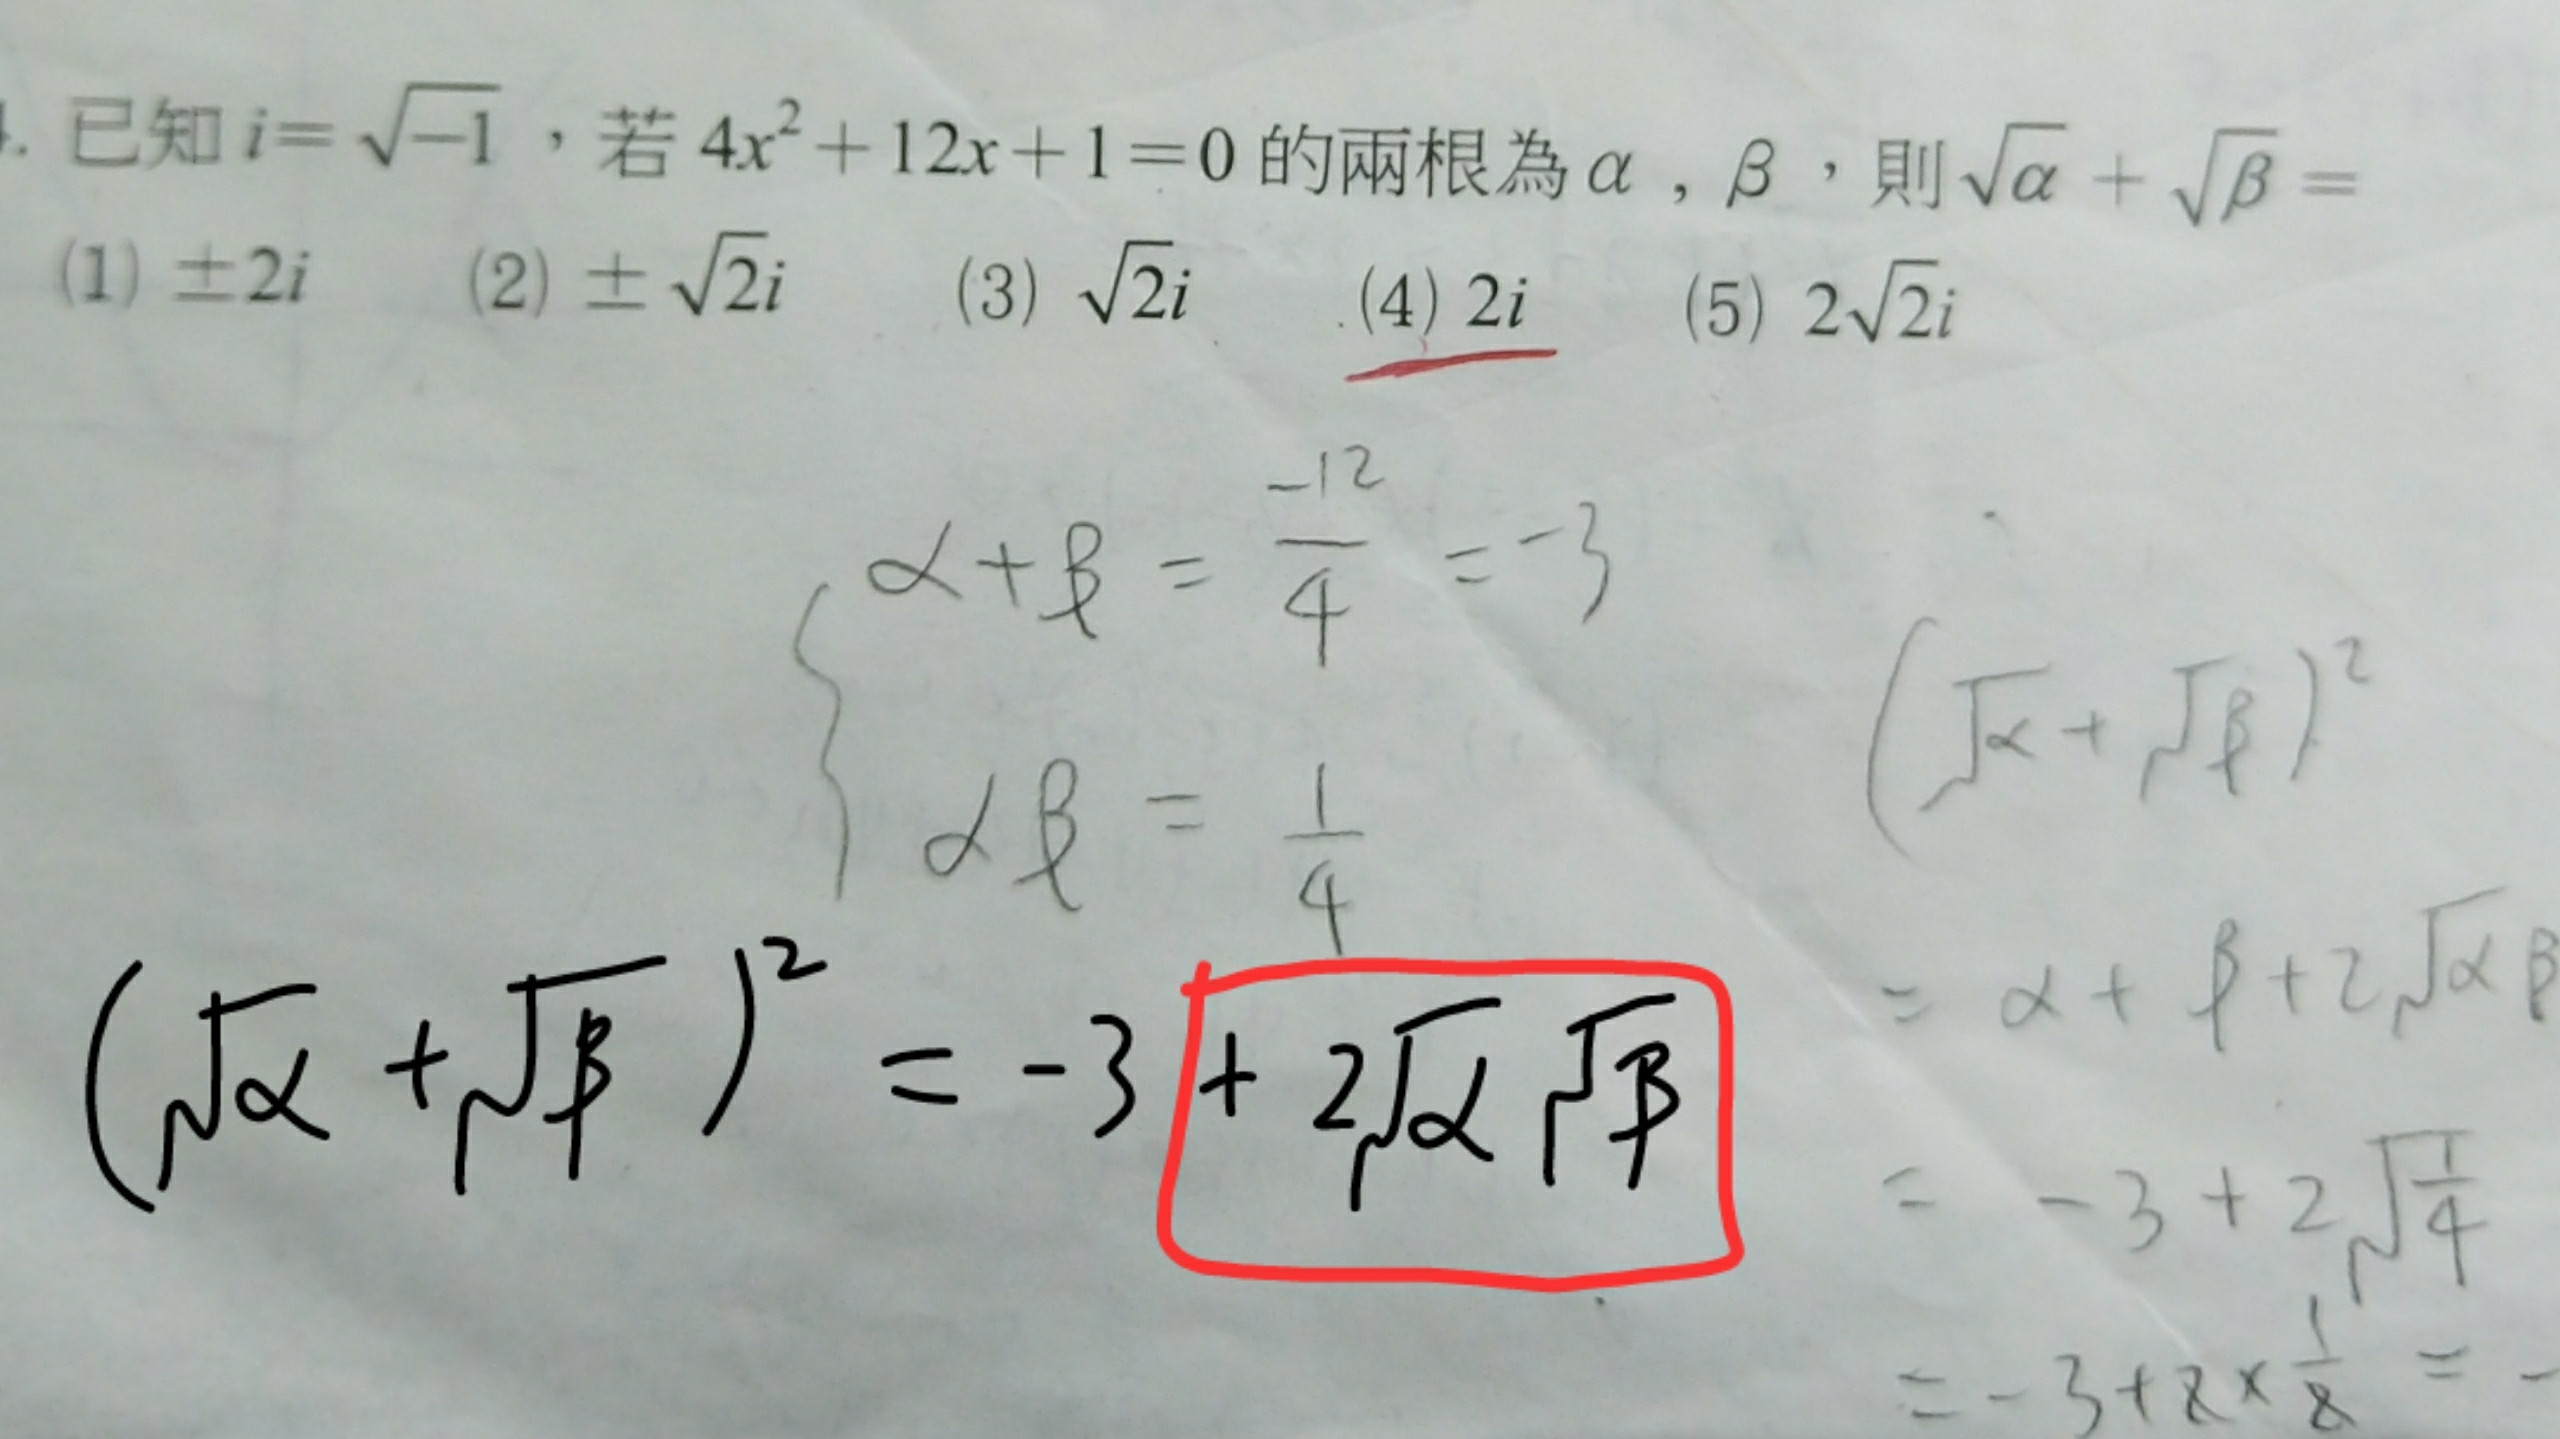 . 已知 i=√−1，若 4x²+12x+1=0 的兩根為 α , β，則√α + √β =
(1) ±2i (2) ±√2i (3) √2i (4) 2i (5) 2√2i
α+β = -12/4 = -3
αβ = 1/4
(√α + √β)² = -3 + 2√α √β
(√α + √β)²
= α + β + 2√αβ
= -3 + 2√1/4
= -3 + 2 × 1/2 = -